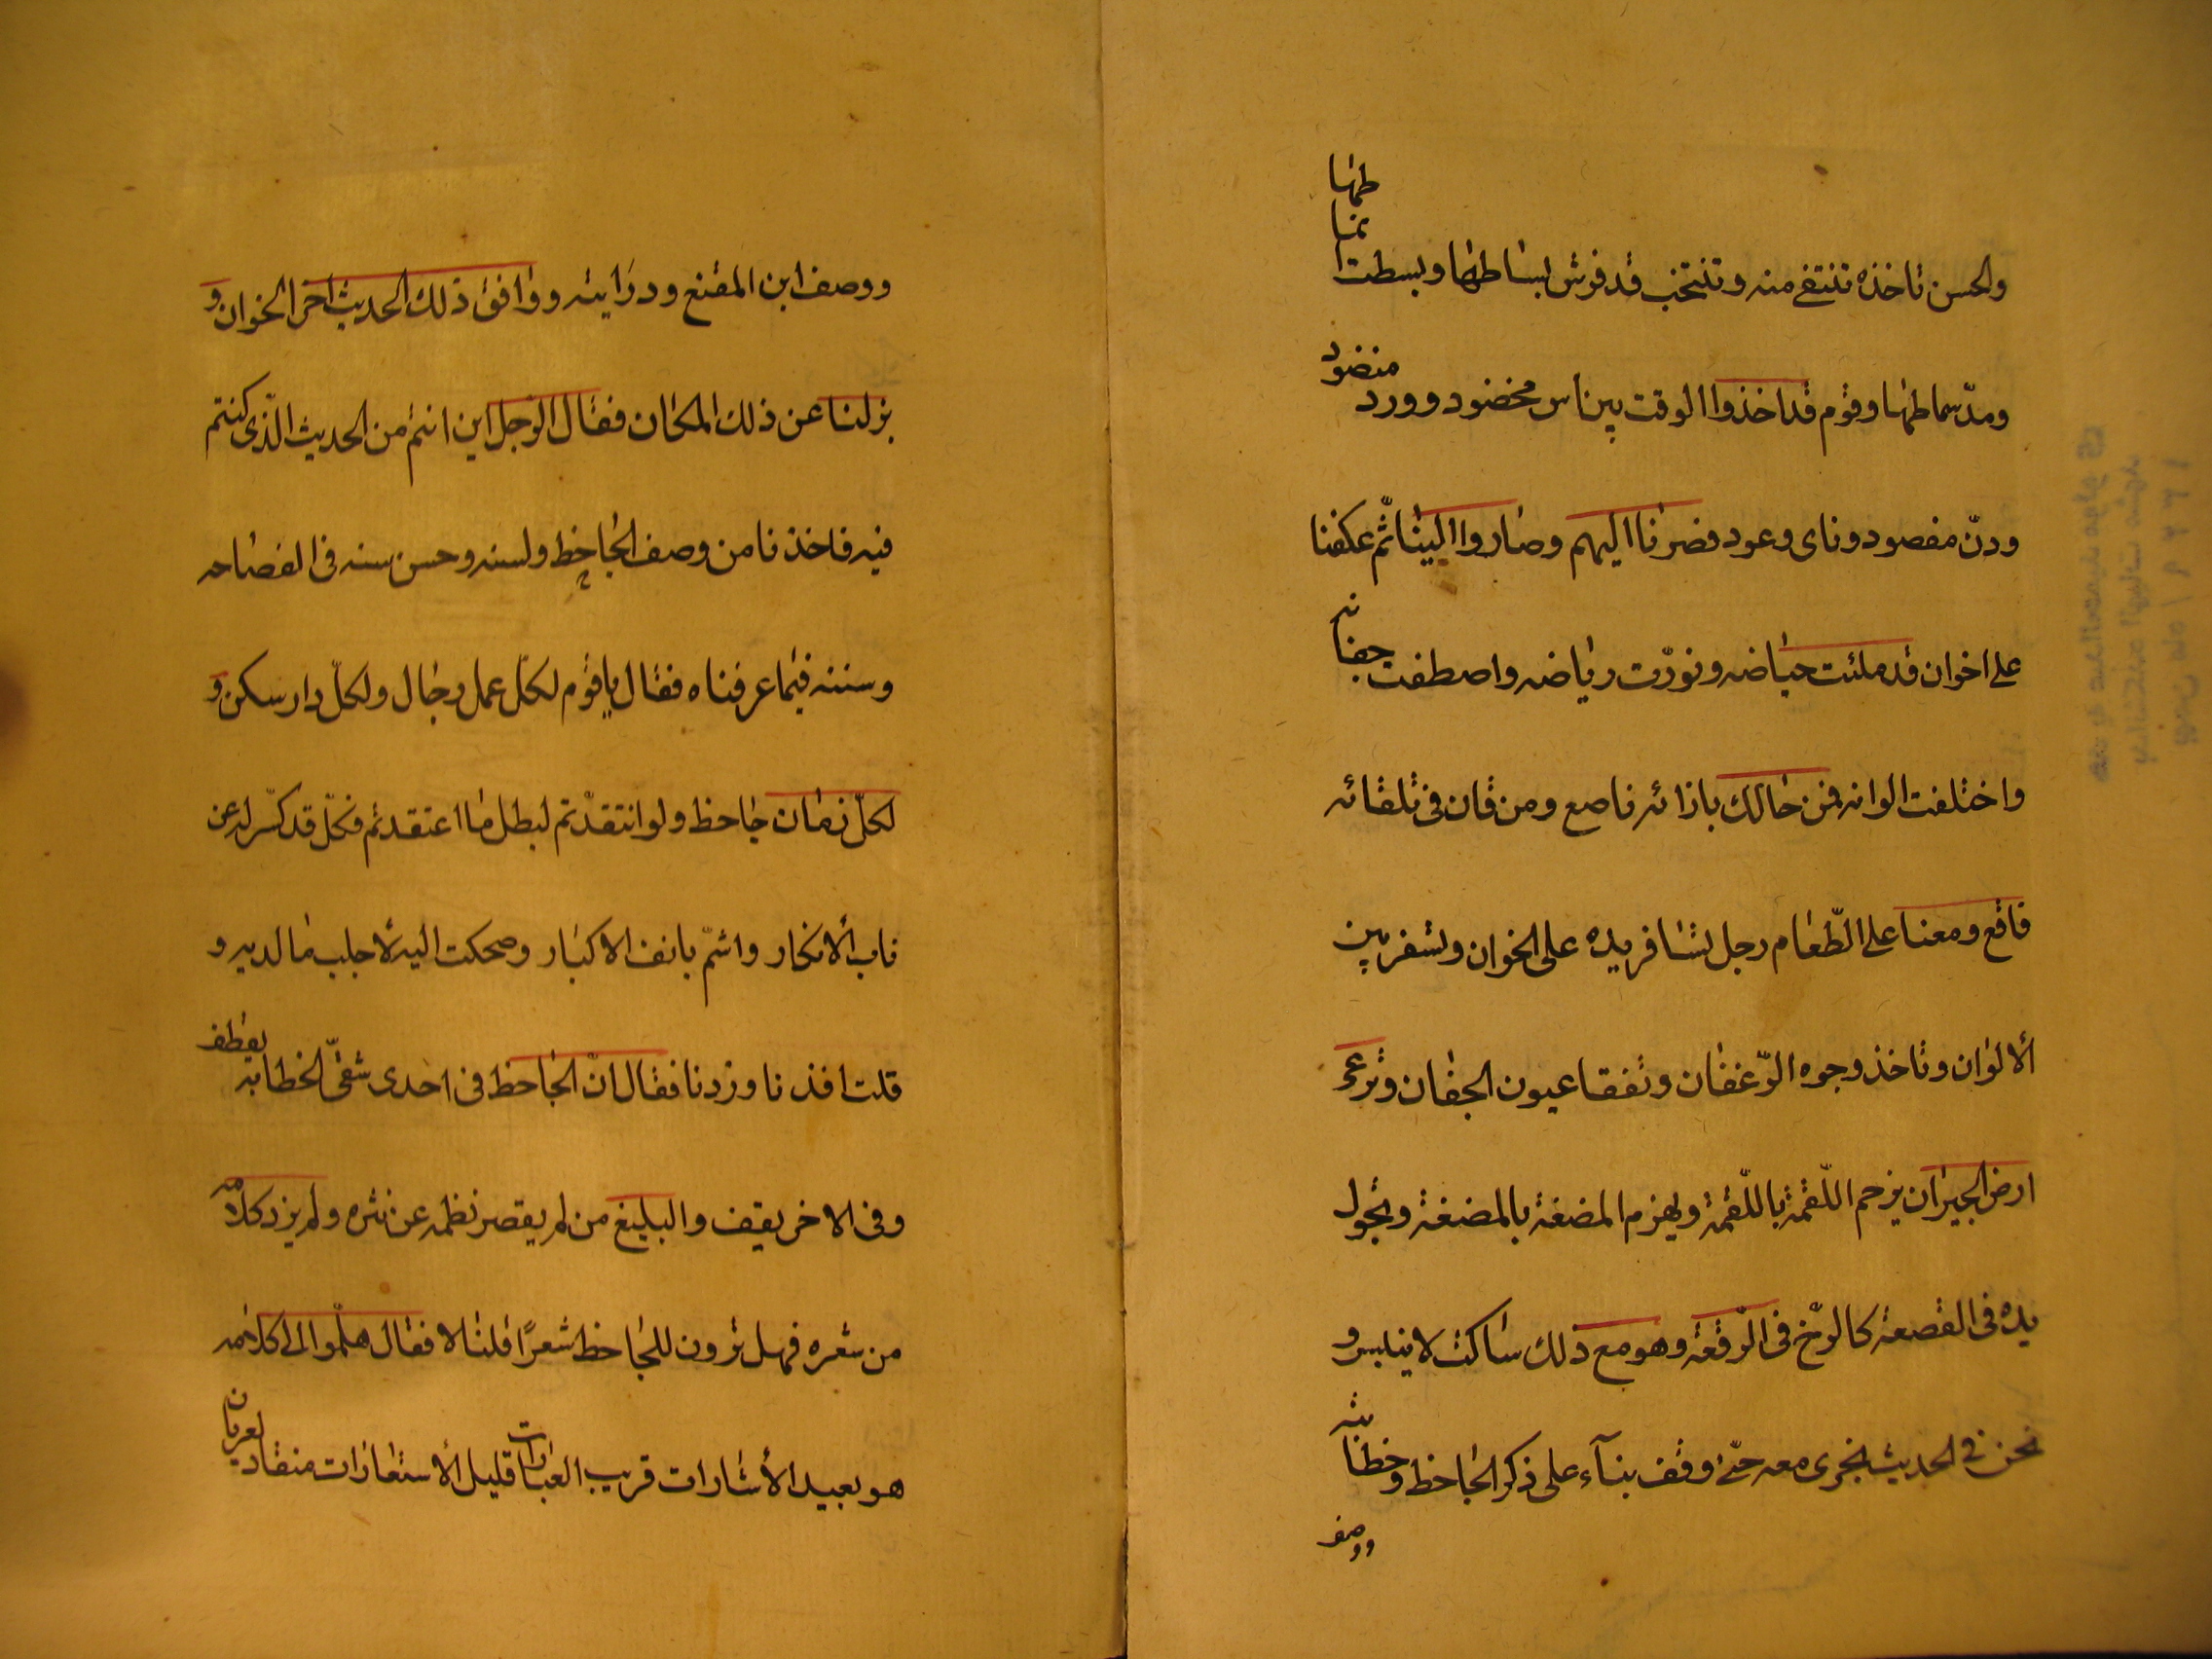 والحسن تاخذه تنتقی منه وتنتخب قد فرش بساطها وبسطت انماطها
ومدّ سماطها وقوم قد اخذوا الوقت بین اس مخضود وورد منضود
ودنّ مفصود ونای وعود فصرنا الیهم وصاروا الینا ثمّ عکفنا
علی اخوان قد ملئت حیاضه ونورّت ریاضه واصطفت جفانه
واختلفت الوانه فمن حالك بازائه ناصع ومن قان فی تلقائه
فاقع ومعنا علی الطّعام رجل تسافر یده علی الخوان وتسفر بین
الالوان وتاخذ وجوه الرّغفان وتفقا عیون الجفان وترعی
ارض الجیران یزحم اللّقمة باللّقمة ویهزم المضغة بالمضغة وتجول
یده فی القصعة کالرّخ فی الرّقعة وهو مع ذلك ساکت لا ینبس و
نحن فی الحدیث نجری معه حتّی وقف بنآء علی ذکر الجاحظ وخطابته
ووصف
ووصف ابن المقنع ودرایته ووافق ذلك الحدیث اخر الخوان و
زلنا عن ذلك المکان فقال الرّجل این انتم من الحدیث الّذی کنتم
فیه فاخذنا من وصف الجاحظ ولسنه وحسن سننه فی الفصاحه
وسننه فیما عرفناه فقال یا قوم لکلّ عمل رجال ولکلّ دار سکن و
لکلّ زمان جاحظ ولو انتقدتم لبطل ما اعتقدتم فکلّ قد کشّر له عن
ناب الانکار واشمّ بانف الاکبار وضحکت الیه لاجلب ما لدیه و
قلت افذنا وزدنا فقال انّ الجاحظ فی احدی شقّی الخطابه یقطف
وفی الاخر یقف والبلیغ من لم یقصر نظمه عن نثره ولم یزر کلامه
من شعره فهل تروون للجاحظ شعرًا قلنا لا فقال هلمّوا الی کلامه
هو بعید الأشارات قریب العبارات قلیل الأستعارات منقاد لعریان